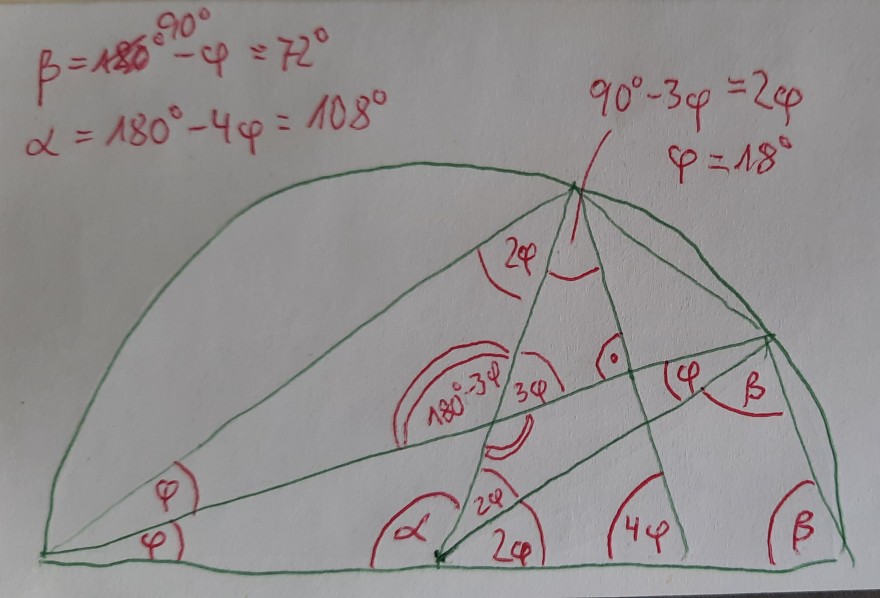 β = 90° - φ = 72°
α = 180° - 4φ = 108°
90° - 3φ = 2φ
φ = 18°
2φ
180° - 3φ
3φ
φ
β
φ
φ
α
2φ
2φ
4φ
β